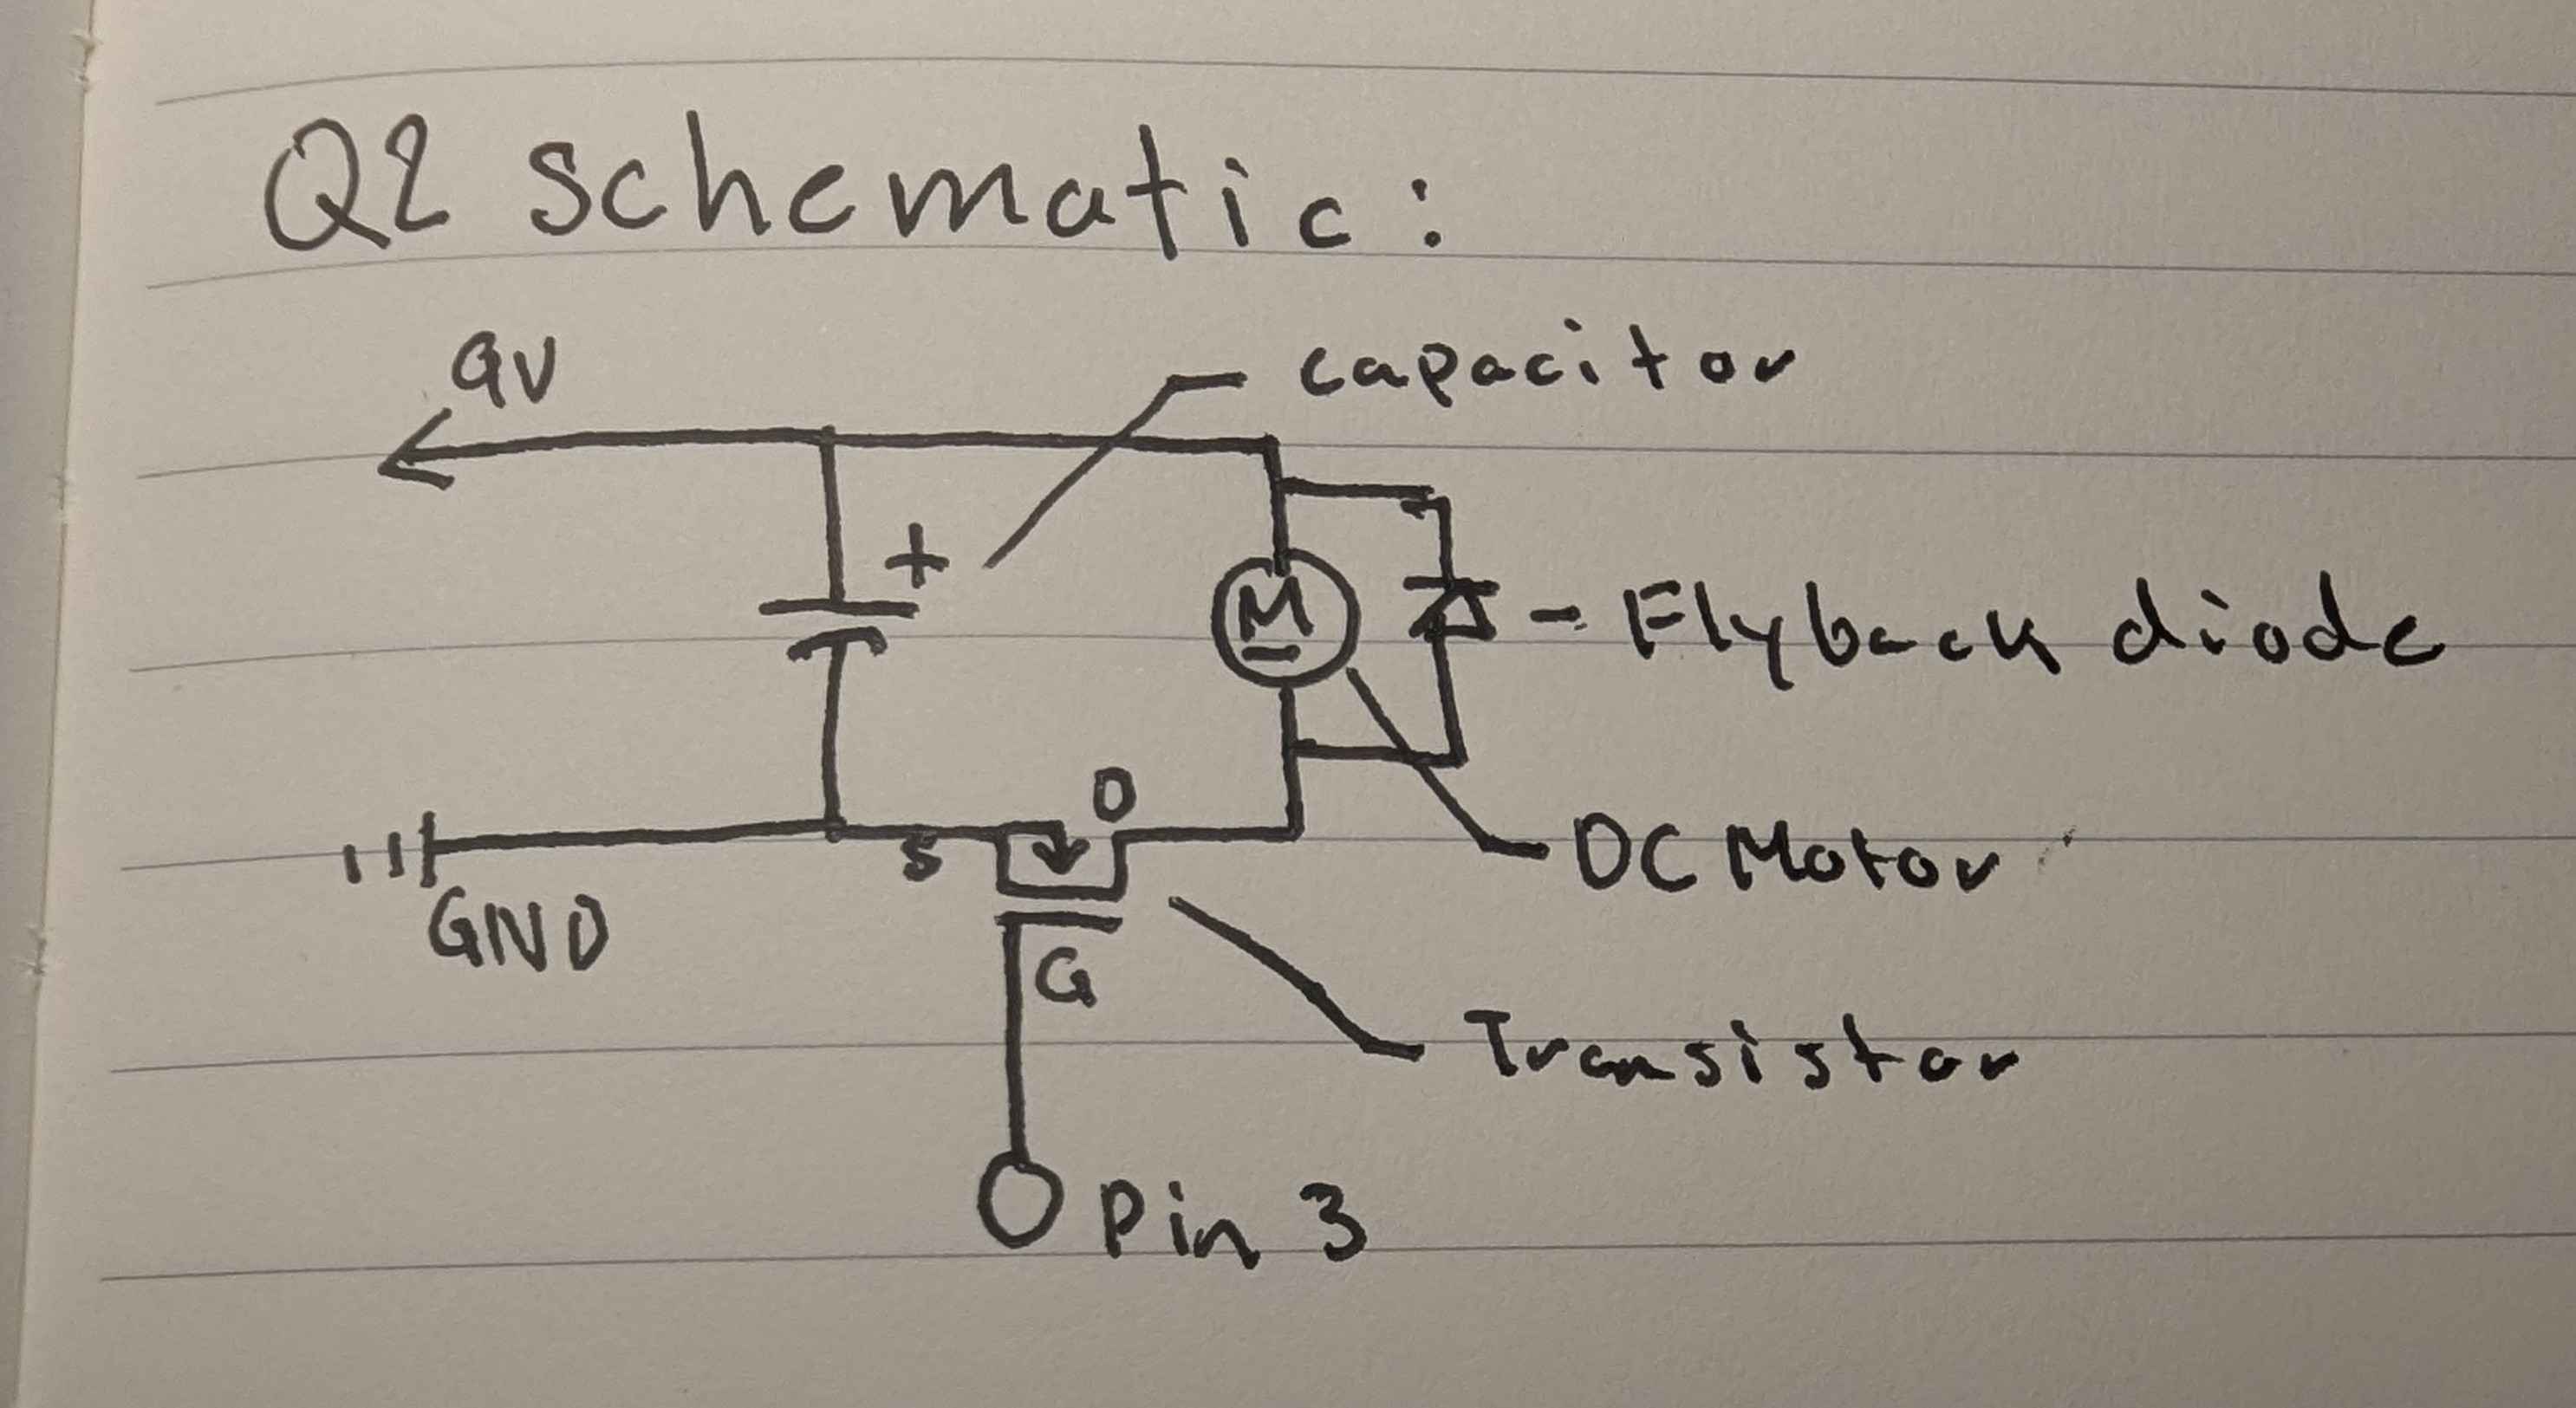 Q2 schematic:
9V
capacitor
+
M
- Flyback diode
D
S
DC Motor
GND
G
Transistor
Pin 3